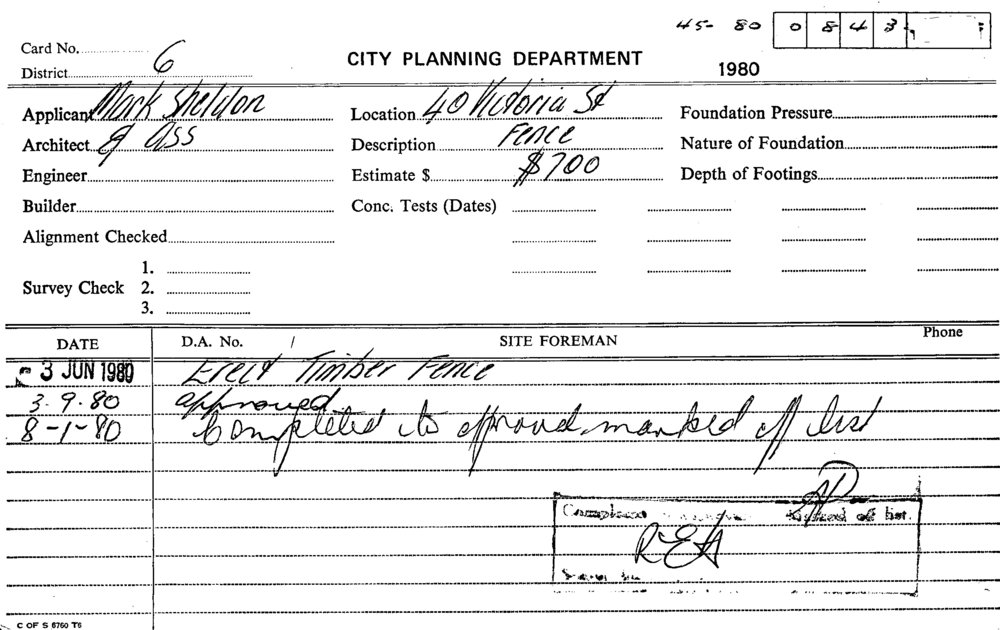 45- 80 0843
Card No.
District 6
CITY PLANNING DEPARTMENT
1980
Applicant Mark Sheldon Location 40 Victoria St Foundation Pressure
Architect & Ass Description Fence Nature of Foundation
Engineer Estimate $ $700 Depth of Footings
Builder Conc. Tests (Dates)
Alignment Checked
1.
Survey Check 2.
3.
DATE D.A. No. / SITE FOREMAN Phone
3 JUN 1980 Erect Timber Fence
3.9.80 approved
8-1-80 Completed to approval marked off list
off list.
REH
C OF S 6760 T6